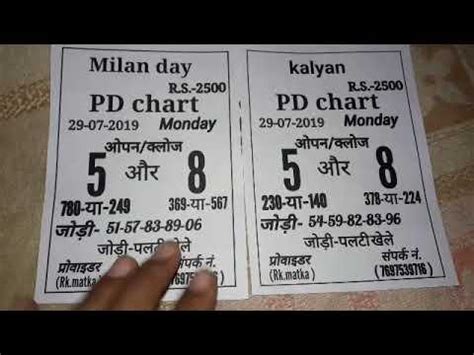 Milan day
R.S.-2500
PD chart
29-07-2019 Monday
ओपन/क्लोज
5 और 8
780-या-249 369-या-567
जोड़ी- 51-57-83-89-06
जोड़ी-पलटी खेले
प्रोवाइडर संपर्क नं.
(Rk.matka)
kalyan
R.S.-2500
PD chart
29-07-2019 Monday
ओपन/क्लोज
5 और 8
230-या-140 378-या-224
जोड़ी- 54-59-82-83-96
जोड़ी-पलटी खेले
प्रोवाइडर संपर्क नं.
(Rk.matka) (7697539716)